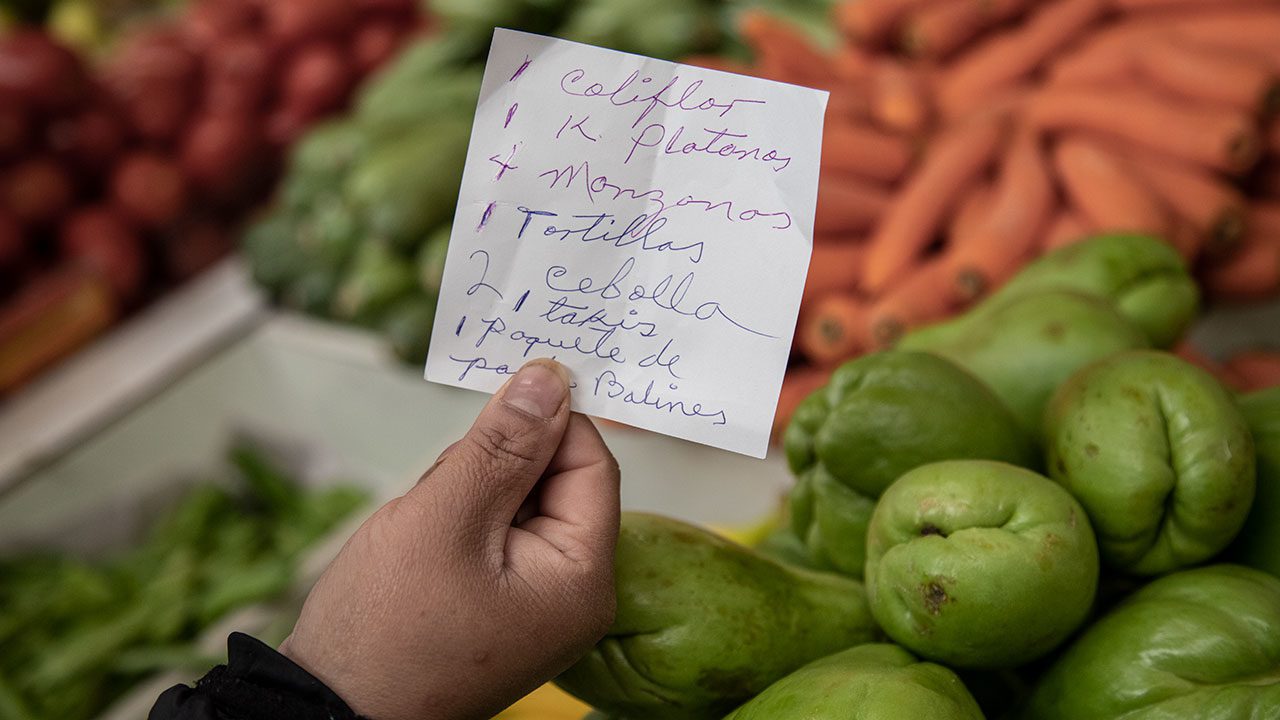 1 Coliflor
1 K. Platanos
4 Manzanas
1 Tortillas
2 cebolla
1 takis
1 paquete de
Balines